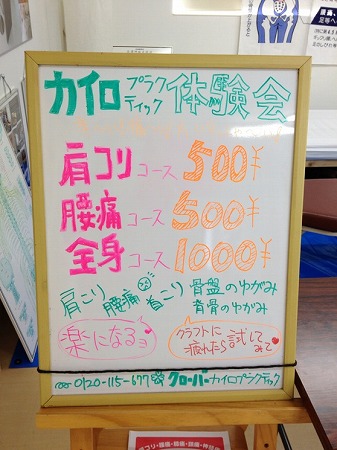 カイロプラクティック体験会
肩コリコース 500¥
腰痛コース 500¥
全身コース 1000¥
肩こり 腰痛 首こり 骨盤のゆがみ
背骨のゆがみ
楽になるョ
クラフトに
疲れたら試して
みて
☎0120-115-677 クローバーカイロプラクティック